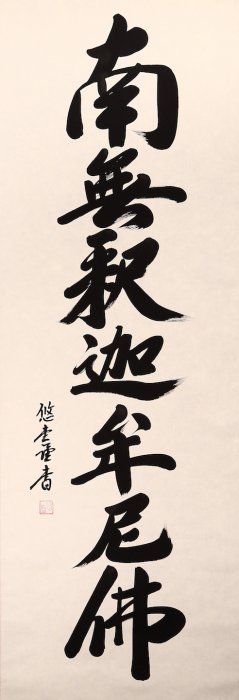 南無釈迦牟尼佛
悠雲書